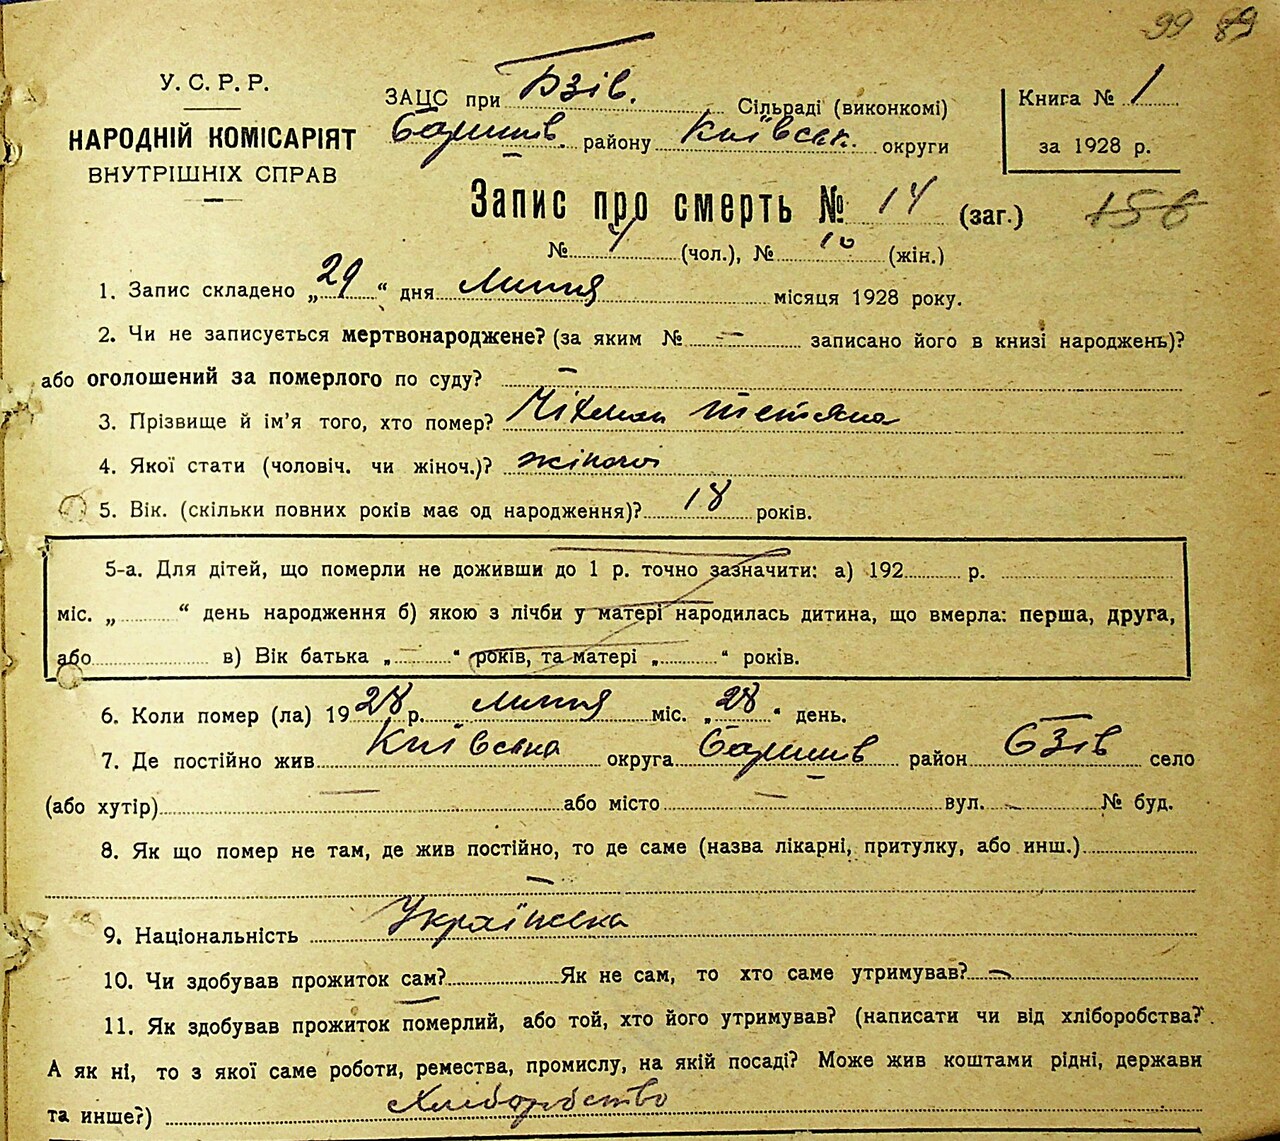 99 89
У. С. Р. Р.
НАРОДНІЙ КОМІСАРІЯТ
ВНУТРІШНІХ СПРАВ
ЗАЦС при Бзів. Сільраді (виконкомі)
Баришів. району Київськ. округи
Книга № 1
за 1928 р.
Запис про смерть № 14 (заг.)
156
№ 4 (чол.), № 10 (жін.)
1. Запис складено „29“ дня Липня місяця 1928 року.
2. Чи не записується мертвонароджене? (за яким № - записано його в книзі народжень)?
або оголошений за померлого по суду? -
3. Прізвище й ім'я того, хто помер? Тетяна
4. Якої стати (чоловіч. чи жіноч.)? жіночої
5. Вік. (скільки повних років має од народження)? 18 років.
5-а. Для дітей, що померли не доживши до 1 р. точно зазначити: а) 192 р.
міс. „ “ день народження б) якою з лічби у матері народилась дитина, що вмерла: перша, друга,
або в) Вік батька „ “ років, та матері „ “ років.
6. Коли помер (ла) 1928 р. Липня міс. „28“ день.
7. Де постійно жив Київська округа Баришів район Бзів село
(або хутір) - або місто - вул. - № буд.
8. Як що помер не там, де жив постійно, то де саме (назва лікарні, притулку, або инш.)
-
9. Національність Українська
10. Чи здобував прожиток сам? Як не сам, то хто саме утримував? -
11. Як здобував прожиток померлий, або той, хто його утримував? (написати чи від хліборобства?
А як ні, то з якої саме роботи, ремества, промислу, на якій посаді? Може жив коштами рідні, держави
та инше?) Хліборобство